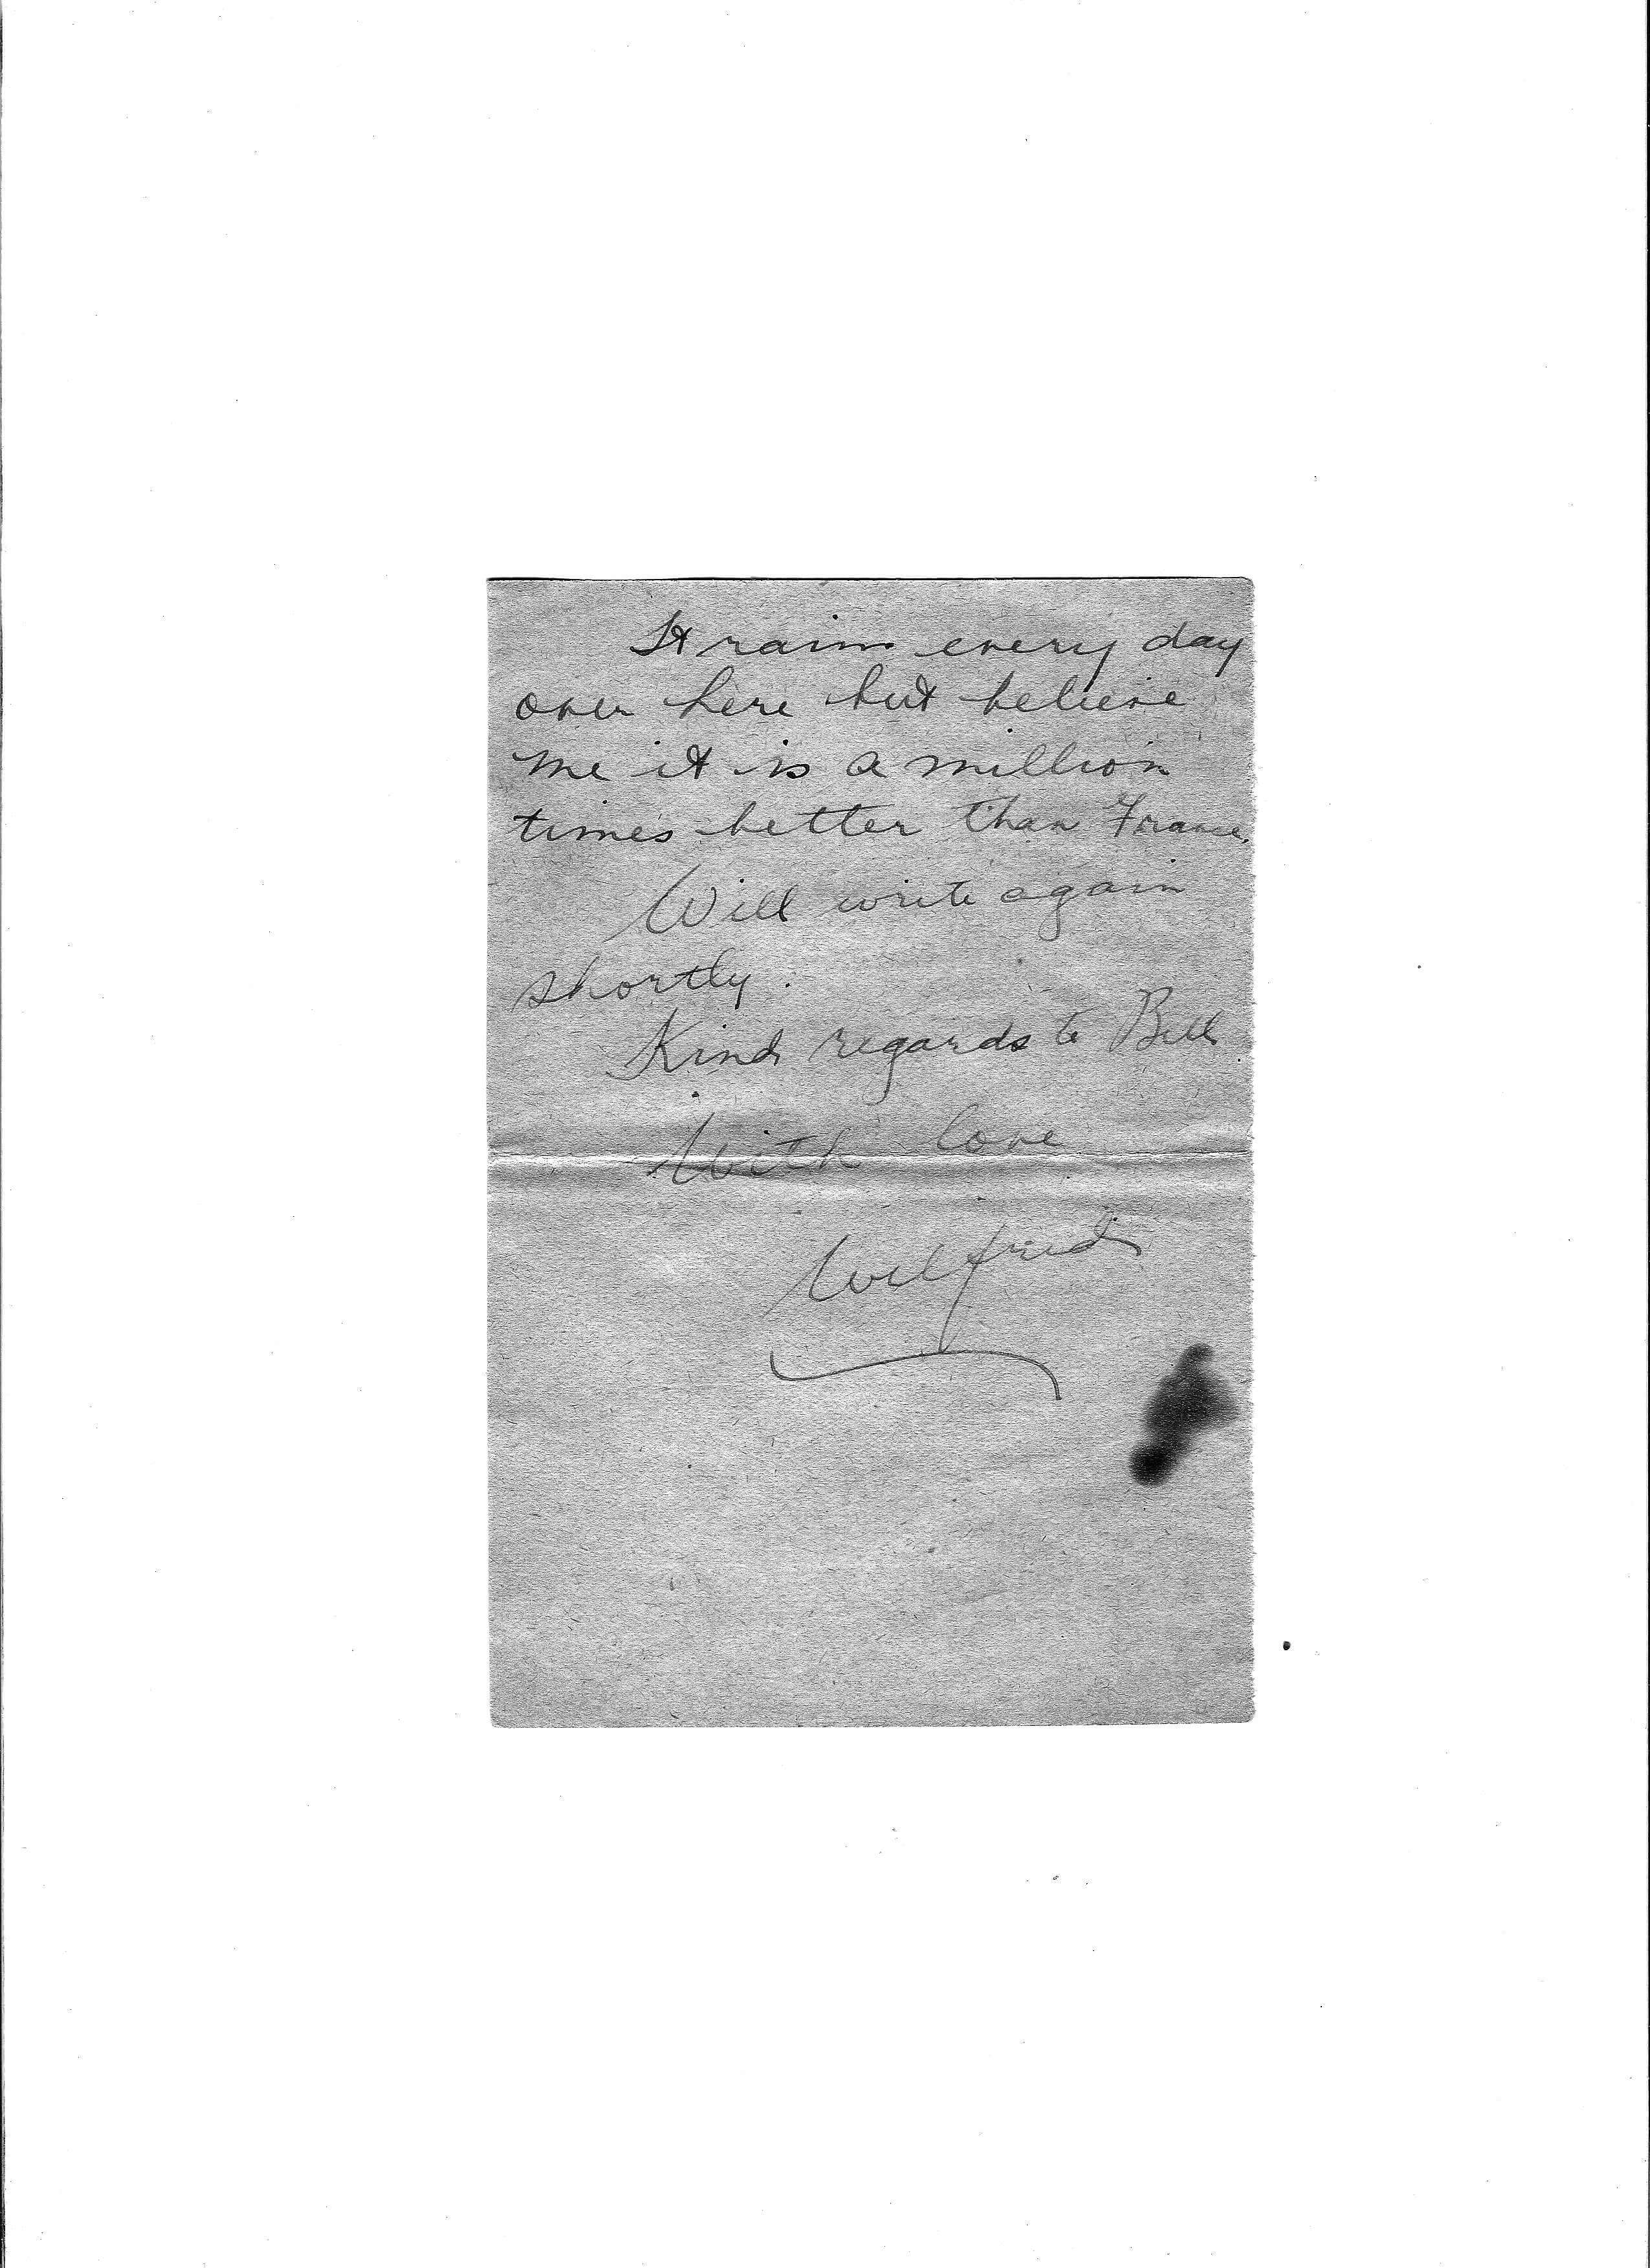 It rains every day
over here but believe
me it is a million
times better than France.
Will write again
shortly.
Kind regards to Bill
With love
Wilfrid